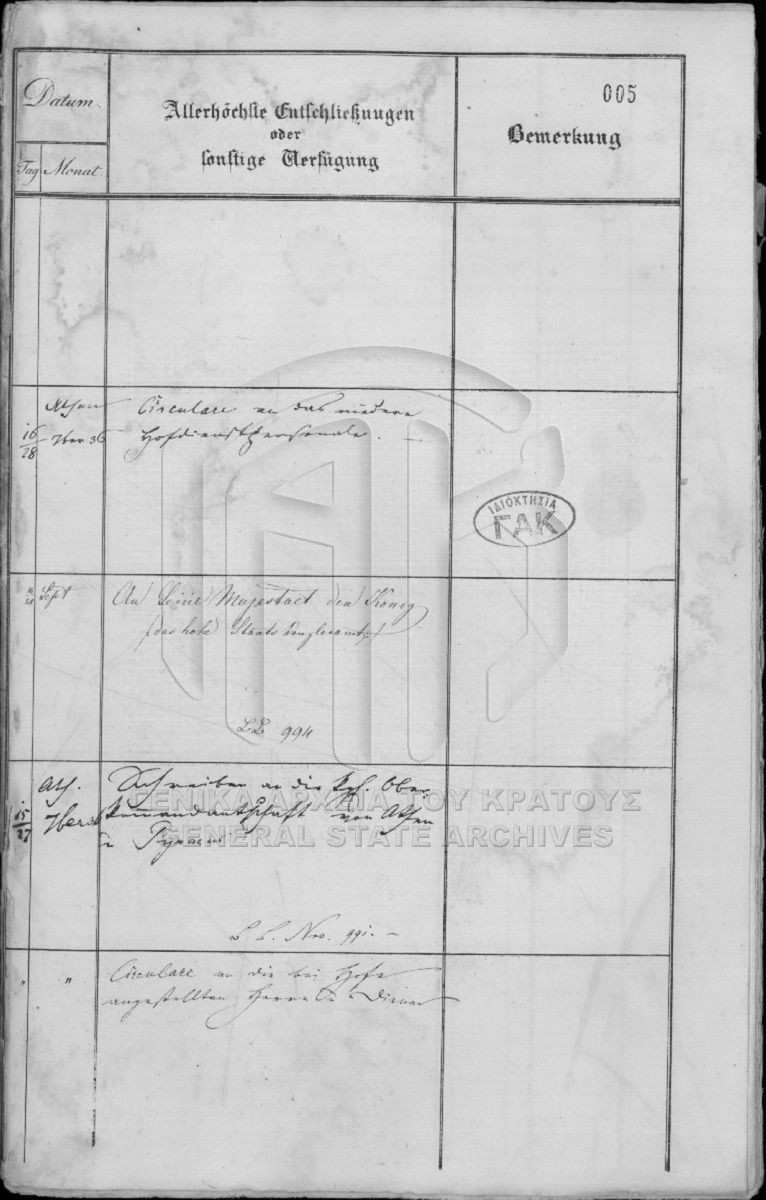 005
Datum.
Tag Monat
Allerhöchste Entschließungen
oder
sonstige Verfügung
Bemerkung
Athen
16/28 7ber 36
Circulare an das niedere
Hofdienstpersonale.
ΙΔΙΟΚΤΗΣΙΑ
ΓΑΚ
16/28 Sept
An Seine Majestaet den König
(das hohe Staats
994
Ath.
15/27 7ber 36
Schreiben an die Kgl. Ober-
komandantschaft von Athen
ΓΕΝΙΚΑ ΑΡΧΕΙΑ ΤΟΥ ΚΡΑΤΟΥΣ
GENERAL STATE ARCHIVES
Nro. 991. –
" "
Circulare an die bei Hofe
angestellten Herren u Diener